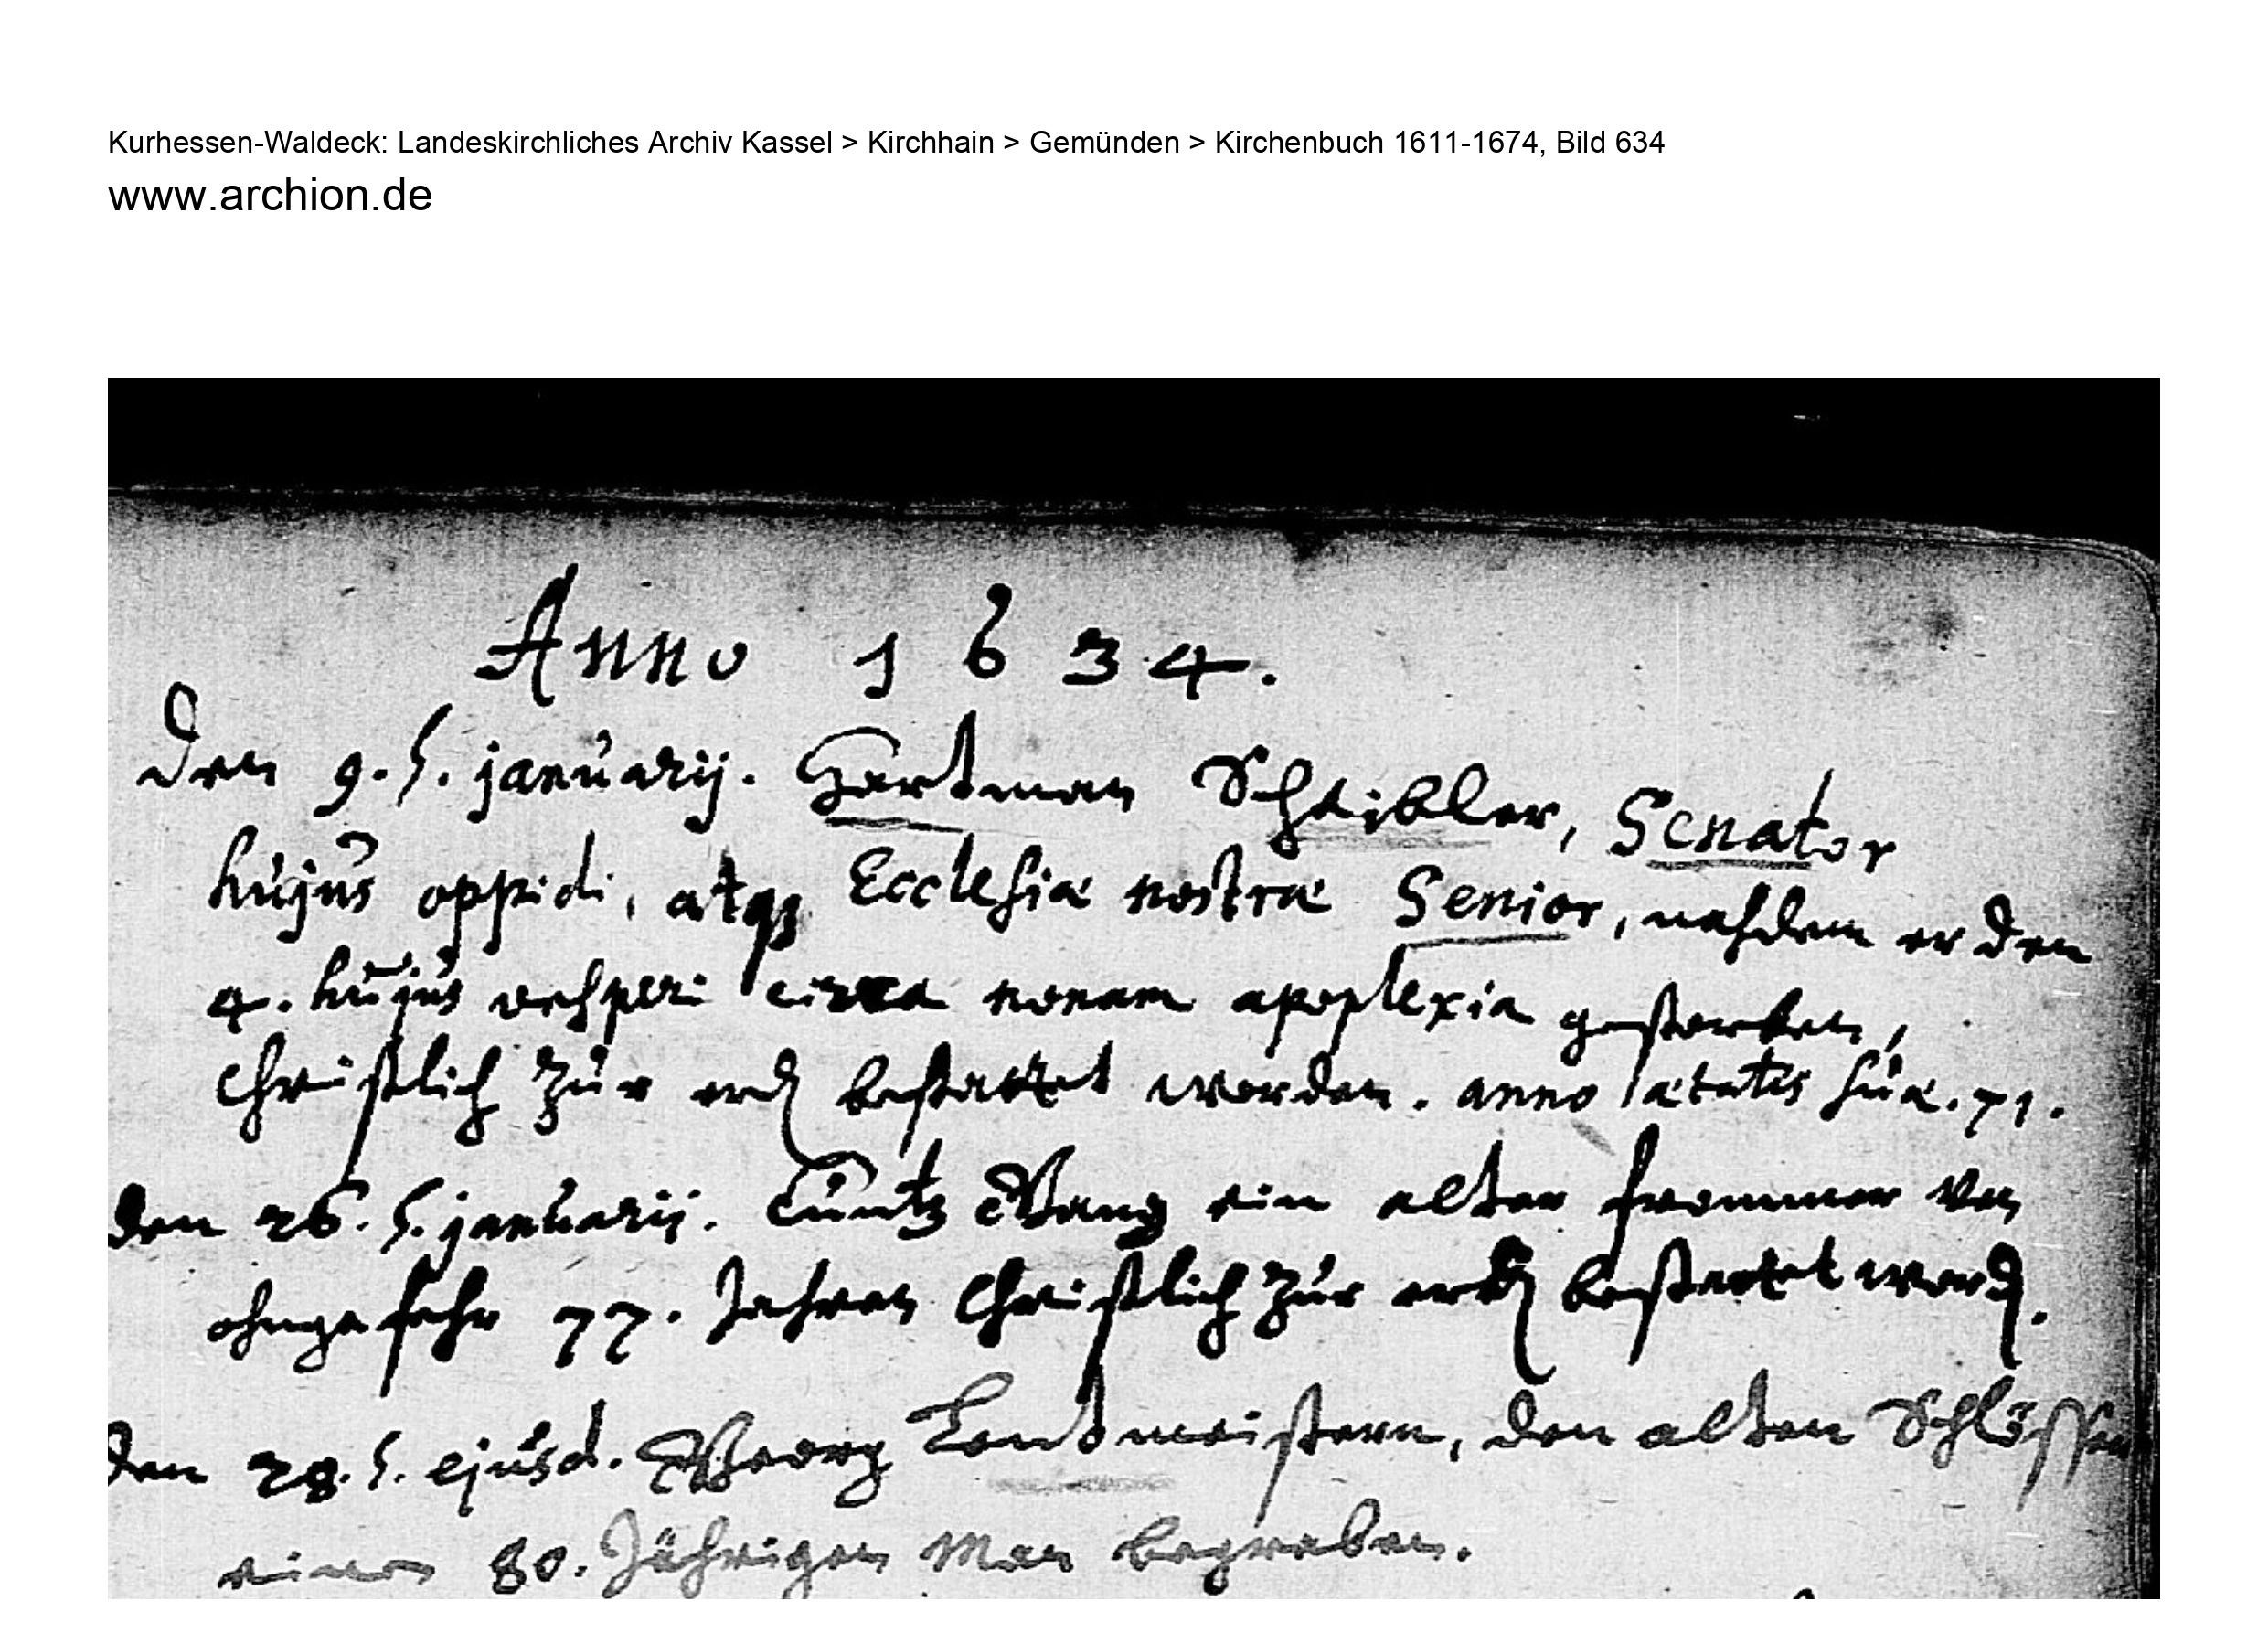 Kurhessen-Waldeck: Landeskirchliches Archiv Kassel > Kirchhain > Gemünden > Kirchenbuch 1611-1674, Bild 634
www.archion.de
Anno 1634.
Den 9. januarij. Hartman Scheibler, Senator
hujus oppidi, atqz Ecclesiæ nostræ Senior, nachdem er den
4. hujus vesperi circa nonam apoplexia gestorben,
Christlich zur erd bestattet worden. anno ætatis suæ. 71.
den 26. januarij. Cuntz ein alter frommer von
ohngefehr 77. Jahren Christlich zur erd bestattet word.
den 28. ejusd. Georg Lentmeistern, den alten
einen 80. Jährigen Man begraben.